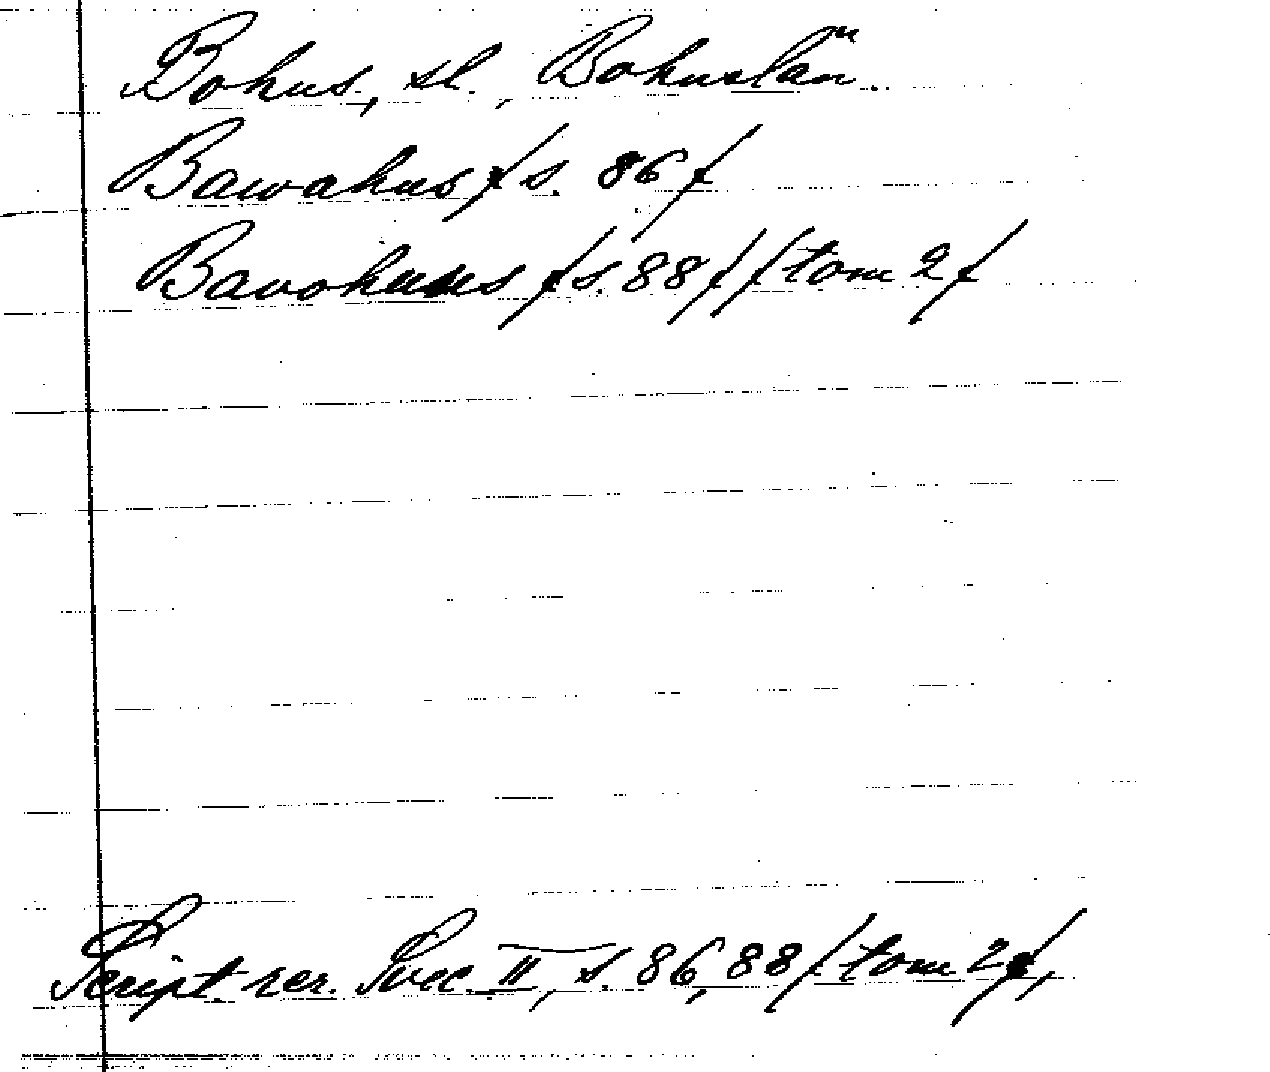 Bohus, sl., Bohuslän.
Bawahus /s. 86/
Bavohuus /s. 88/ /tom 2/
Script. rer. Svec. II, s. 86, 88 /tom 2/,